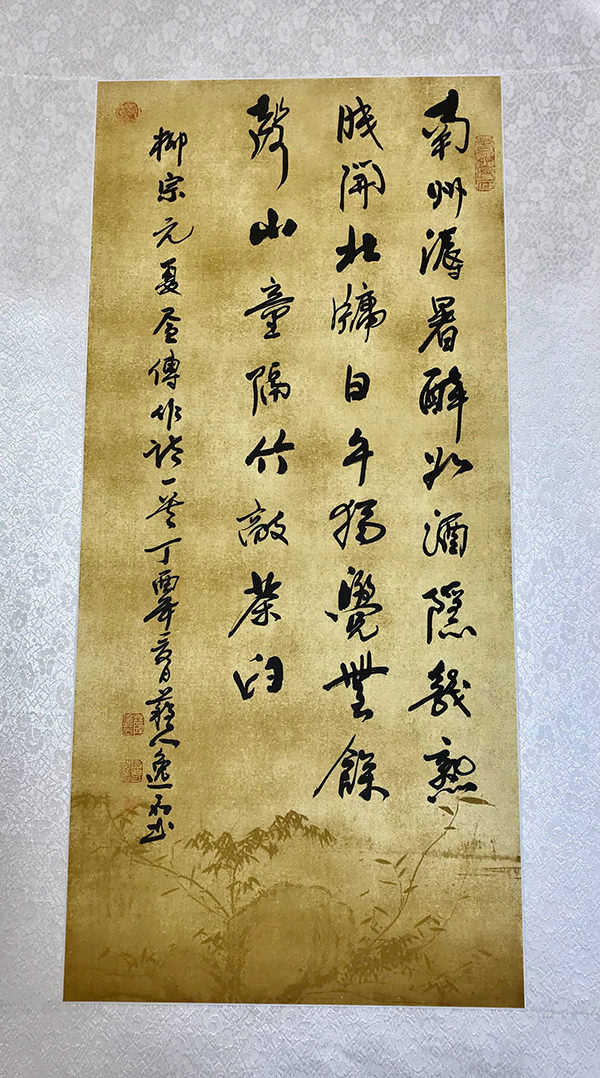 南州溽暑醉如酒隱幾熟
眠開北牖日午獨覺無餘
聲山童隔竹敲茶臼
柳宗元夏昼偶作詩一首丁酉年夏日人逸石書